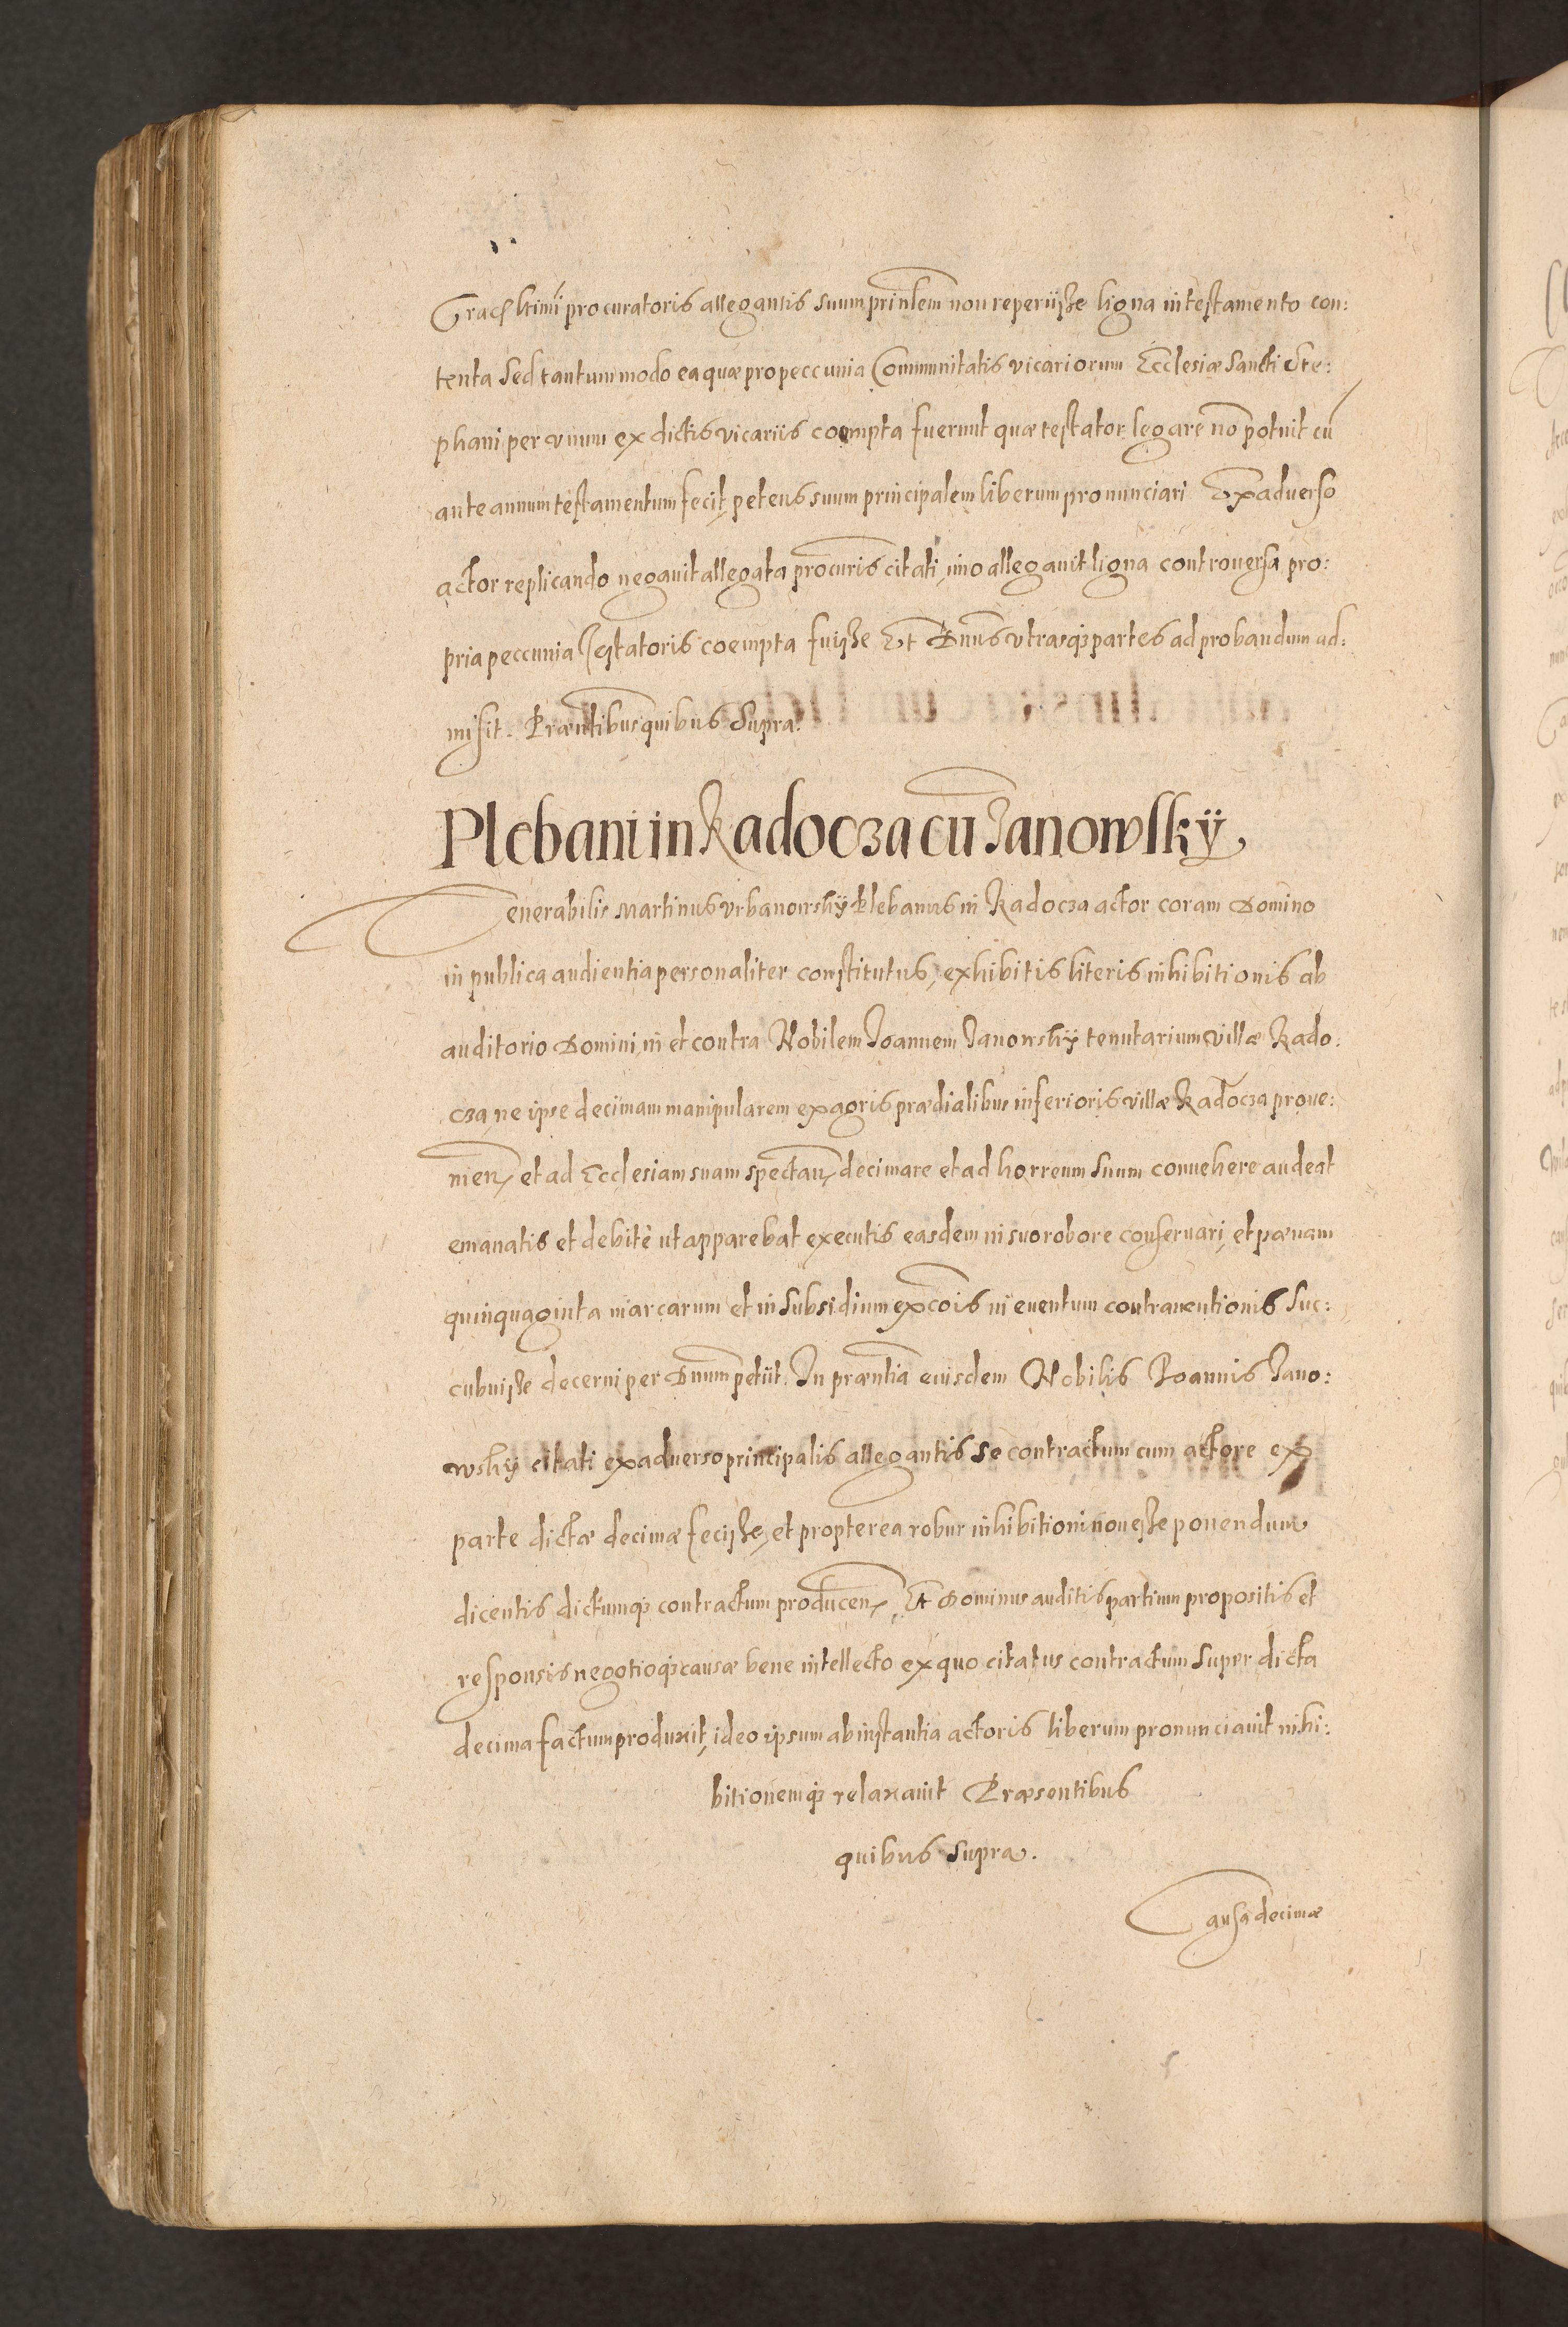 Grac. ltimi procuratoris allegantis suum prinlem non reperiisse ligna in testamento con:
tenta sed tantummodo ea quæ pro peccunia Communitatis vicariorum Ecclesiæ Sancti Ste:
phani per vnum ex dictis vicariis coempta fuerunt quæ testator legare nō potuit cū
ante annum testamentum fecit, petens suum principalem liberum pronunciari Ex adverso
actor replicando negauit allegata procuris citati, imo allegauit ligna controuersa pro:
pria peccunia Testatoris coempta fuisse Et Dnus vtrasq3 partes ad probandum ad:
misit. Præntibus quibus Supra.
Plebani in Radocza cū Janowsky
Venerabilis Martinus Vrbanowsky Plebanus in Radocza actor coram Domino
in publica audientia personaliter constitutus, exhibitis literis inhibitionis ab
auditorio Domini, in et contra Nobilem Joannem Janowsky tenutarium villæ Rado:
cza, ne ipse decimam manipularem ex agris prædialibus inferioris villæ Radocza proue:
nien, et ad Ecclesiam suam spectan, decimare et ad horreum suum conuehere audeat
emanatis et debitè ut apparebat executis easdem in suo robore conseruari, et pænam
quinquaginta marcarum et in Subsidium excōis in euentum contrauentionis Suc:
cubuisse decerni per Dnum petiit. In præntia eiusdem Nobilis Joannis Jano:
wsky citati ex aduerso principalis allegantis se contractum cum actore ex
parte dictæ decimæ fecisse, et propterea robur inhibitioni non esse ponendum
dicentis dictumq3 contractum producen, Et Dominus auditis partium propositis et
responsis negotioq3 causæ bene intellecto ex quo citatus contractum super dicta
decima factum produxit, ideo ipsum ab instantia actoris liberum pronunciauit inhi:
bitionemq3 relaxauit Præsentibus
quibus Supra.
Causa decimæ